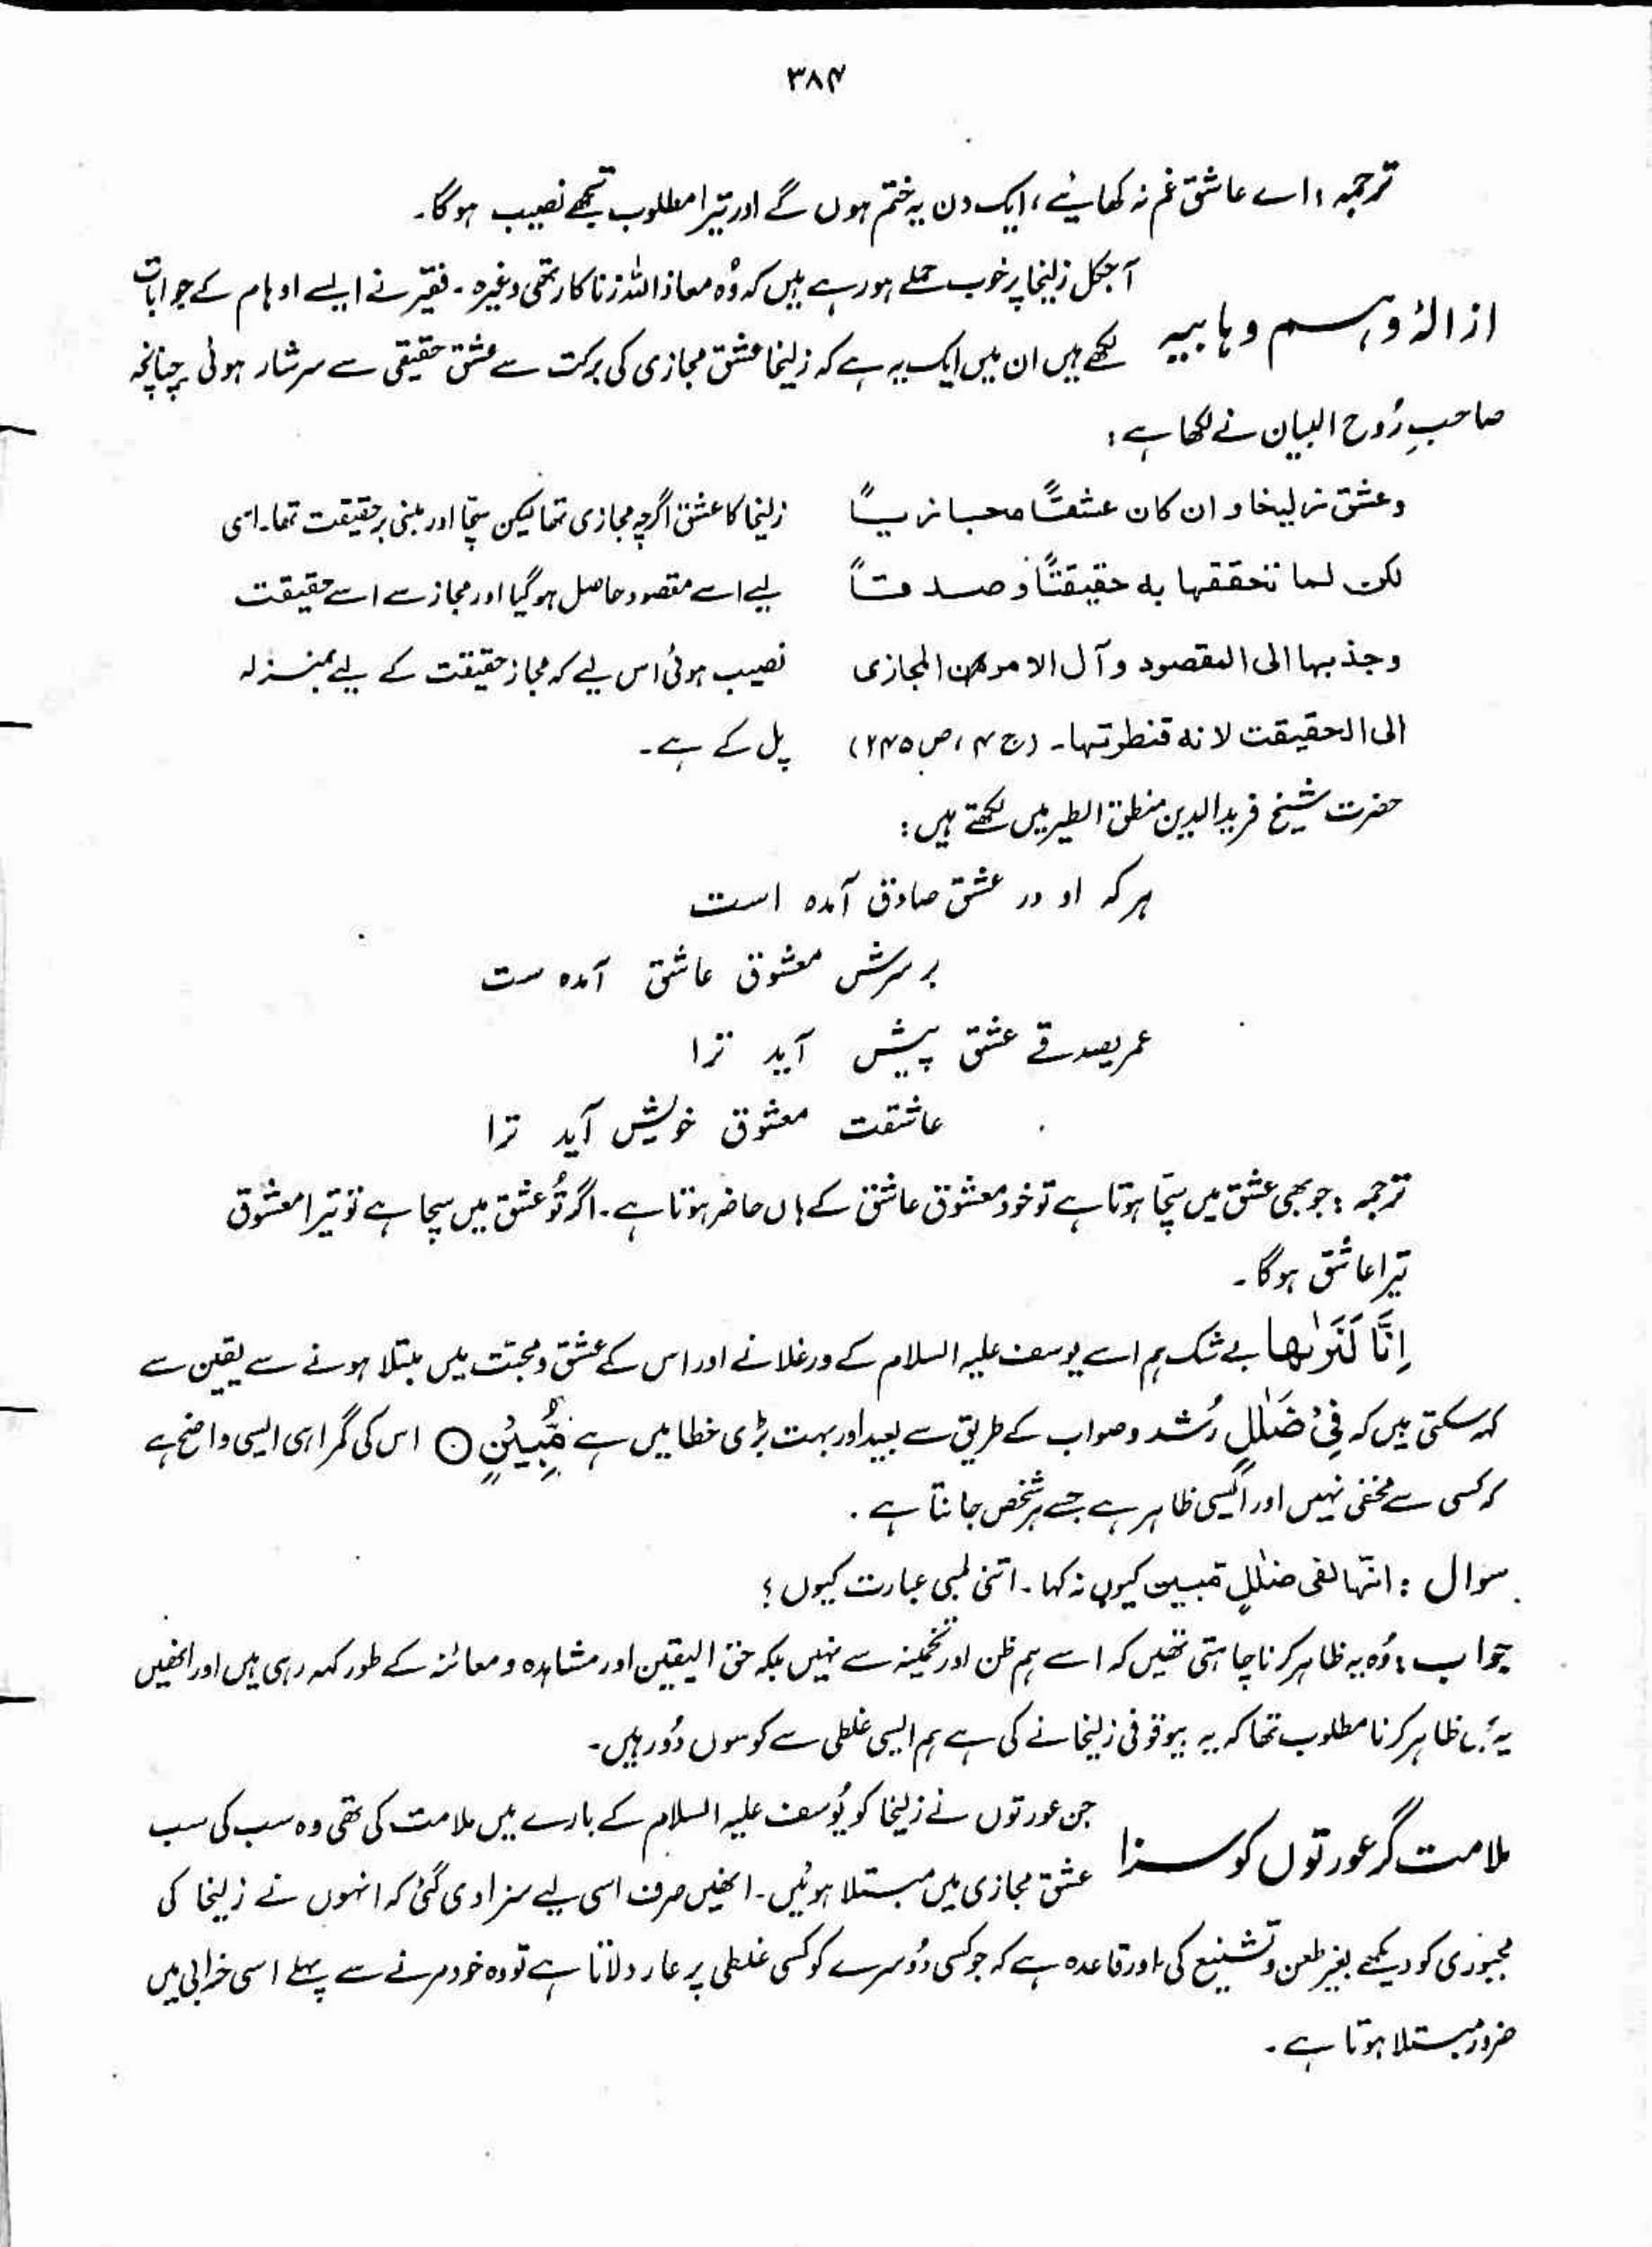 ۳۸۴
ترجمہ : اے عاشق غم نہ کھائیے ، ایک دن یہ ختم ہوں گے اور تیرا مطلوب تجھے نصیب ہوگا۔
ازالۂ وہم وہابیہ
آجکل زلیخا پر خوب حملے ہورہے ہیں کہ وُہ معاذ اللہ زناکار تھی وغیرہ ۔ فقیر نے ایسے اوہام کے جوابات
لکھے ہیں ان میں ایک یہ ہے کہ زلیخا عشق مجازی کی برکت سے عشق حقیقی سے سرشار ہوئی چنانچہ
صاحبِ رُوح البیان نے لکھا ہے :
وعشق زلیخا و ان کان عشقًا مجازیًا
لکن لما تحققہا بہ حقیقتًا و صدقًا
وجذبہا الی المقصود و آل الامر من المجازی
الی الحقیقت لانہ قنطرتہا۔ (ج ۴ ، ص ۲۴۵)
زلیخا کا عشق اگرچہ مجازی تھا لیکن سچّا اور مبنی بر حقیقت تھا۔ اسی
لیے اسے مقصود حاصل ہوگیا اور مجاز سے اسے حقیقت
نصیب ہوئی اس لیے کہ مجاز حقیقت کے لیے بمنزلہ
پل کے ہے ۔
حضرت شیخ فرید الدین منطق الطیر میں لکھتے ہیں :
ہر کہ او در عشق صادق آمدہ است
بر سرش معشوق عاشق آمدہ ست
عمر بصدقے عشق پیش آید ترا
عاشقت معشوق خویش آید ترا
ترجمہ : جو بھی عشق میں سچّا ہوتا ہے تو خود معشوق عاشق کے ہاں حاضر ہوتا ہے ۔ اگر تُو عشق میں سچا ہے تو تیرا معشوق
تیرا عاشق ہوگا ۔
اِنَّا لَنَرٰىهَا بے شک ہم اسے یوسف علیہ السلام کے ورغلانے اور اس کے عشق و محبّت میں مبتلا ہونے سے یقین سے
کہہ سکتی ہیں کہ فِیْ ضَلٰلٍ رُشد و صواب کے طریق سے بعید اور بہت بڑی خطا میں ہے مُّبِیْنٍ ○ اس کی گمراہی ایسی واضح ہے
کہ کسی سے مخفی نہیں اور ایسی ظاہر ہے جسے ہر شخص جانتا ہے ۔
سوال : انّہا لفی ضلٰلٍ مّبین کیوں نہ کہا ۔ اتنی لمبی عبارت کیوں ؟
جواب : وُہ یہ ظاہر کرنا چاہتی تھیں کہ اسے ہم ظن اور تخمینہ سے نہیں بلکہ حق الیقین اور مشاہدہ و معائنہ کے طور کہہ رہی ہیں اور انھیں
یہ بھی ظاہر کرنا مطلوب تھا کہ یہ بیوقوفی زلیخا نے کی ہے ہم ایسی غلطی سے کوسوں دُور ہیں ۔
ملامت گر عورتوں کو سزا
جن عورتوں نے زلیخا کو یُوسف علیہ السلام کے بارے میں ملامت کی تھی وہ سب کی سب
عشق مجازی میں مبتلا ہوئیں ۔ انھیں صرف اسی لیے سزا دی گئی کہ انہوں نے زلیخا کی
مجبوری کو دیکھے بغیر طعن و تشنیع کی ، اور قاعدہ ہے کہ جو کسی دُوسرے کو کسی غلطی پر عار دلاتا ہے تو وہ خود مرنے سے پہلے اسی خرابی میں
ضرور مبتلا ہوتا ہے ۔